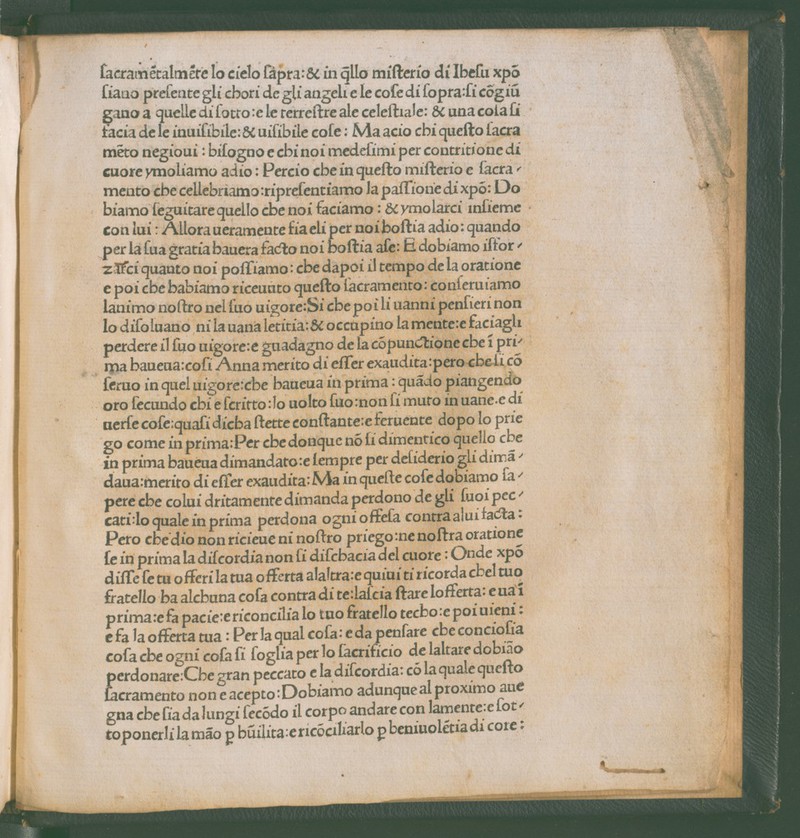 sacramētalmēte lo cielo sapra:& in q̄llo misterio di Ihesu xpō
siano presente gli chori de gli angeli e le cose di sopra:si cōgiū
gano a quelle di sotto:e le terrestre ale celestiale: & una cosa si
facia de le inuisibile:& uisibile cose: Ma acio chi questo sacra
mēto negioui : bisogno e chi noi medesimi per contritione di
cuore ymoliamo adio: Percio che in questo misterio e sacra-
mento che cellebriamo:ripresentiamo la passione di xpō: Do
biamo seguitare quello che noi faciamo : & ymolarci insieme
con lui : Allora ueramente sia eli per noi hostia adio: quando
per la sua gratia hauera facto noi hostia ase: E dobiamo isfor-
zarci quanto noi possiamo: che dapoi il tempo de la oratione
e poi che habiamo riceuuto questo sacramento: conseruiamo
lanimo nostro nel suo uigore:Si che poi li uanni pensieri non
lo disoluano ni la uana letitia:& occupino la mente:e faciagli
perdere il suo uigore:e guadagno de la cōpunctione che ī pri-
ma haueua:cosi Anna merito di esser exaudita:pero che si cō
seruo in quel uigore:che haueua in prima : quādo piangendo
oro secundo chi e scritto:lo uolto suo:non si muto in uane.e di
uerse cose:quasi dicba stette constante:e feruente dopo lo prie
go come in prima:Per che donque nō si dimentico quello che
in prima haueua dimandato:e sempre per desiderio gli dimā-
daua:merito di esser exaudita:Ma in queste cose dobiamo sa-
pere che colui dritamente dimanda perdono de gli suoi pec-
cati:lo quale in prima perdona ogni offesa contra alui facta:
Pero che dio non ricieue ni nostro priego:ne nostra oratione
se in prima la discordia non si dischacia del cuore : Onde xpō
disse se tu offeri la tua offerta alaltra:e quiui ti ricorda chel tuo
fratello ha alchuna cosa contra di te:lascia stare lofferta: e ua ī
prima:e fa pacie:e riconcilia lo tuo fratello techo:e poi uieni :
e fa la offerta tua : Per la qual cosa: e da pensare che conciosia
cosa che ogni cosa si soglia per lo sacrificio de laltare dobiāo
perdonare:Che gran peccato e la discordia: cō la quale questo
sacramento non e acepto:Dobiamo adunque al proximo aue
gna che sia da lungi secōdo il corpo andare con lamente:e sot-
toponerli la māo ꝑ hūilita:e ricōciliarlo ꝑ beniuolētia di core: